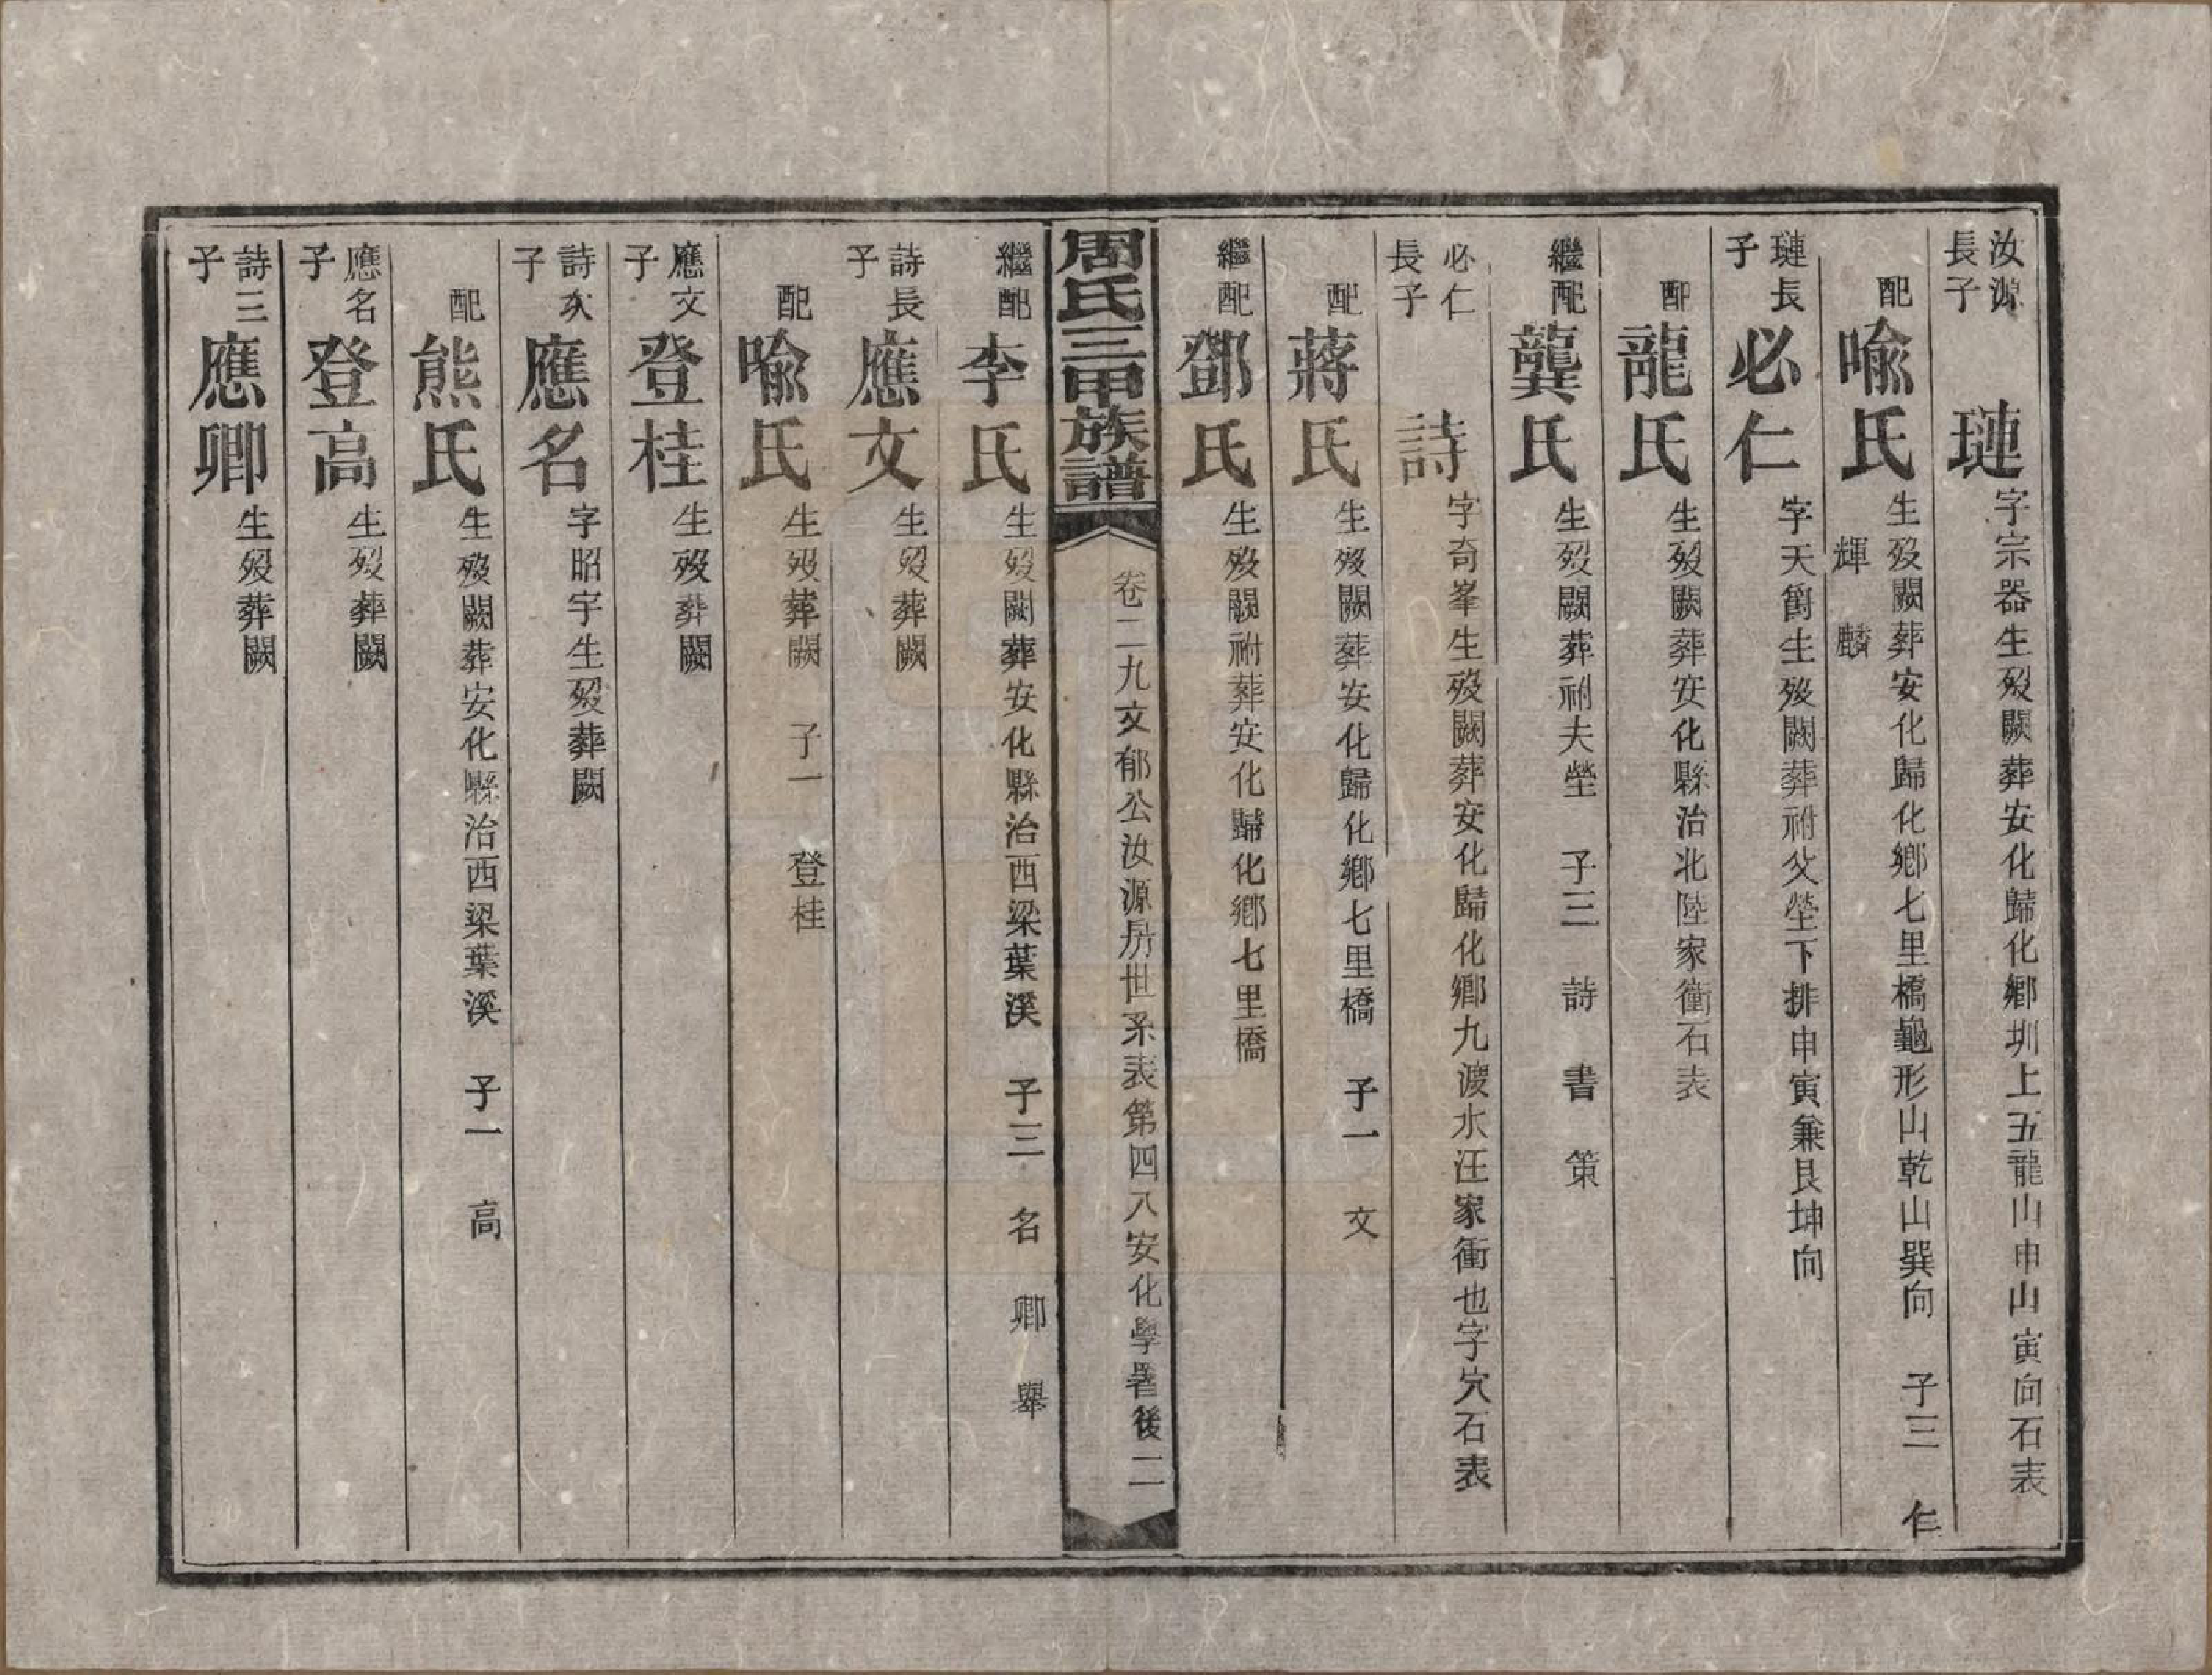 汝源長子 璉 字宗器生殁闕葬安化歸化鄉圳上五龍山申山寅向石表
配 喩氏 生殁闕葬安化歸化鄉七里橋龜形山乾山巽向 子三 仁 輝 麟
璉長子 必仁 字天爵生殁闕葬祔父塋下排申寅兼艮坤向
配 龍氏 生殁闕葬安化縣治北陸家衝石表
繼配 龔氏 生殁闕葬祔夫塋 子三 詩 書 策
必仁長子 詩 字奇峯生殁闕葬安化歸化鄉九渡水汪家衝也字穴石表
配 蔣氏 生殁闕葬安化歸化鄉七里橋 子一 文
繼配 鄧氏 生殁闕祔葬安化歸化鄉七里橋
周氏三甲族譜 卷二九文郁公汝源房世系表第四八安化學署後二
繼配 李氏 生殁闕葬安化縣治西梁葉溪 子三 名 卿 舉
詩長子 應文 生殁葬闕
配 喩氏 生殁葬闕 子一 登桂
應文子 登桂 生殁葬闕
詩次子 應名 字昭宇生殁葬闕
配 熊氏 生殁闕葬安化縣治西梁葉溪 子一 高
應名子 登高 生殁葬闕
詩三子 應卿 生殁葬闕